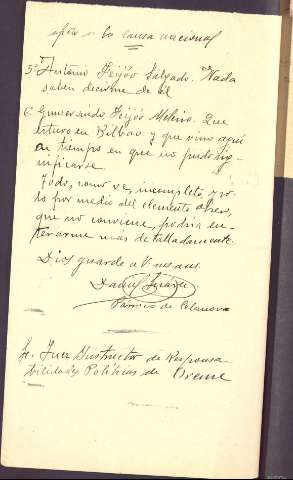 afín a la causa nacional
5º Antonio Feijóo Salgado. Nada
saben decirme de él
6º Gumersindo Feijóo Meleiro. Que
estuvo en Bilbao y que vino aquí
en tiempo en que no pudo sig-
nificarse.
Todo, como ve, incompleto, y so-
lo por medio del elemento obrero,
que no conviene, podría en-
terarme más detalladamente.
Dios guarde a V. ms. ans.
Párroco de Celanova
Sr. Juez Instructor de Responsa-
bilidades Políticas de Orense